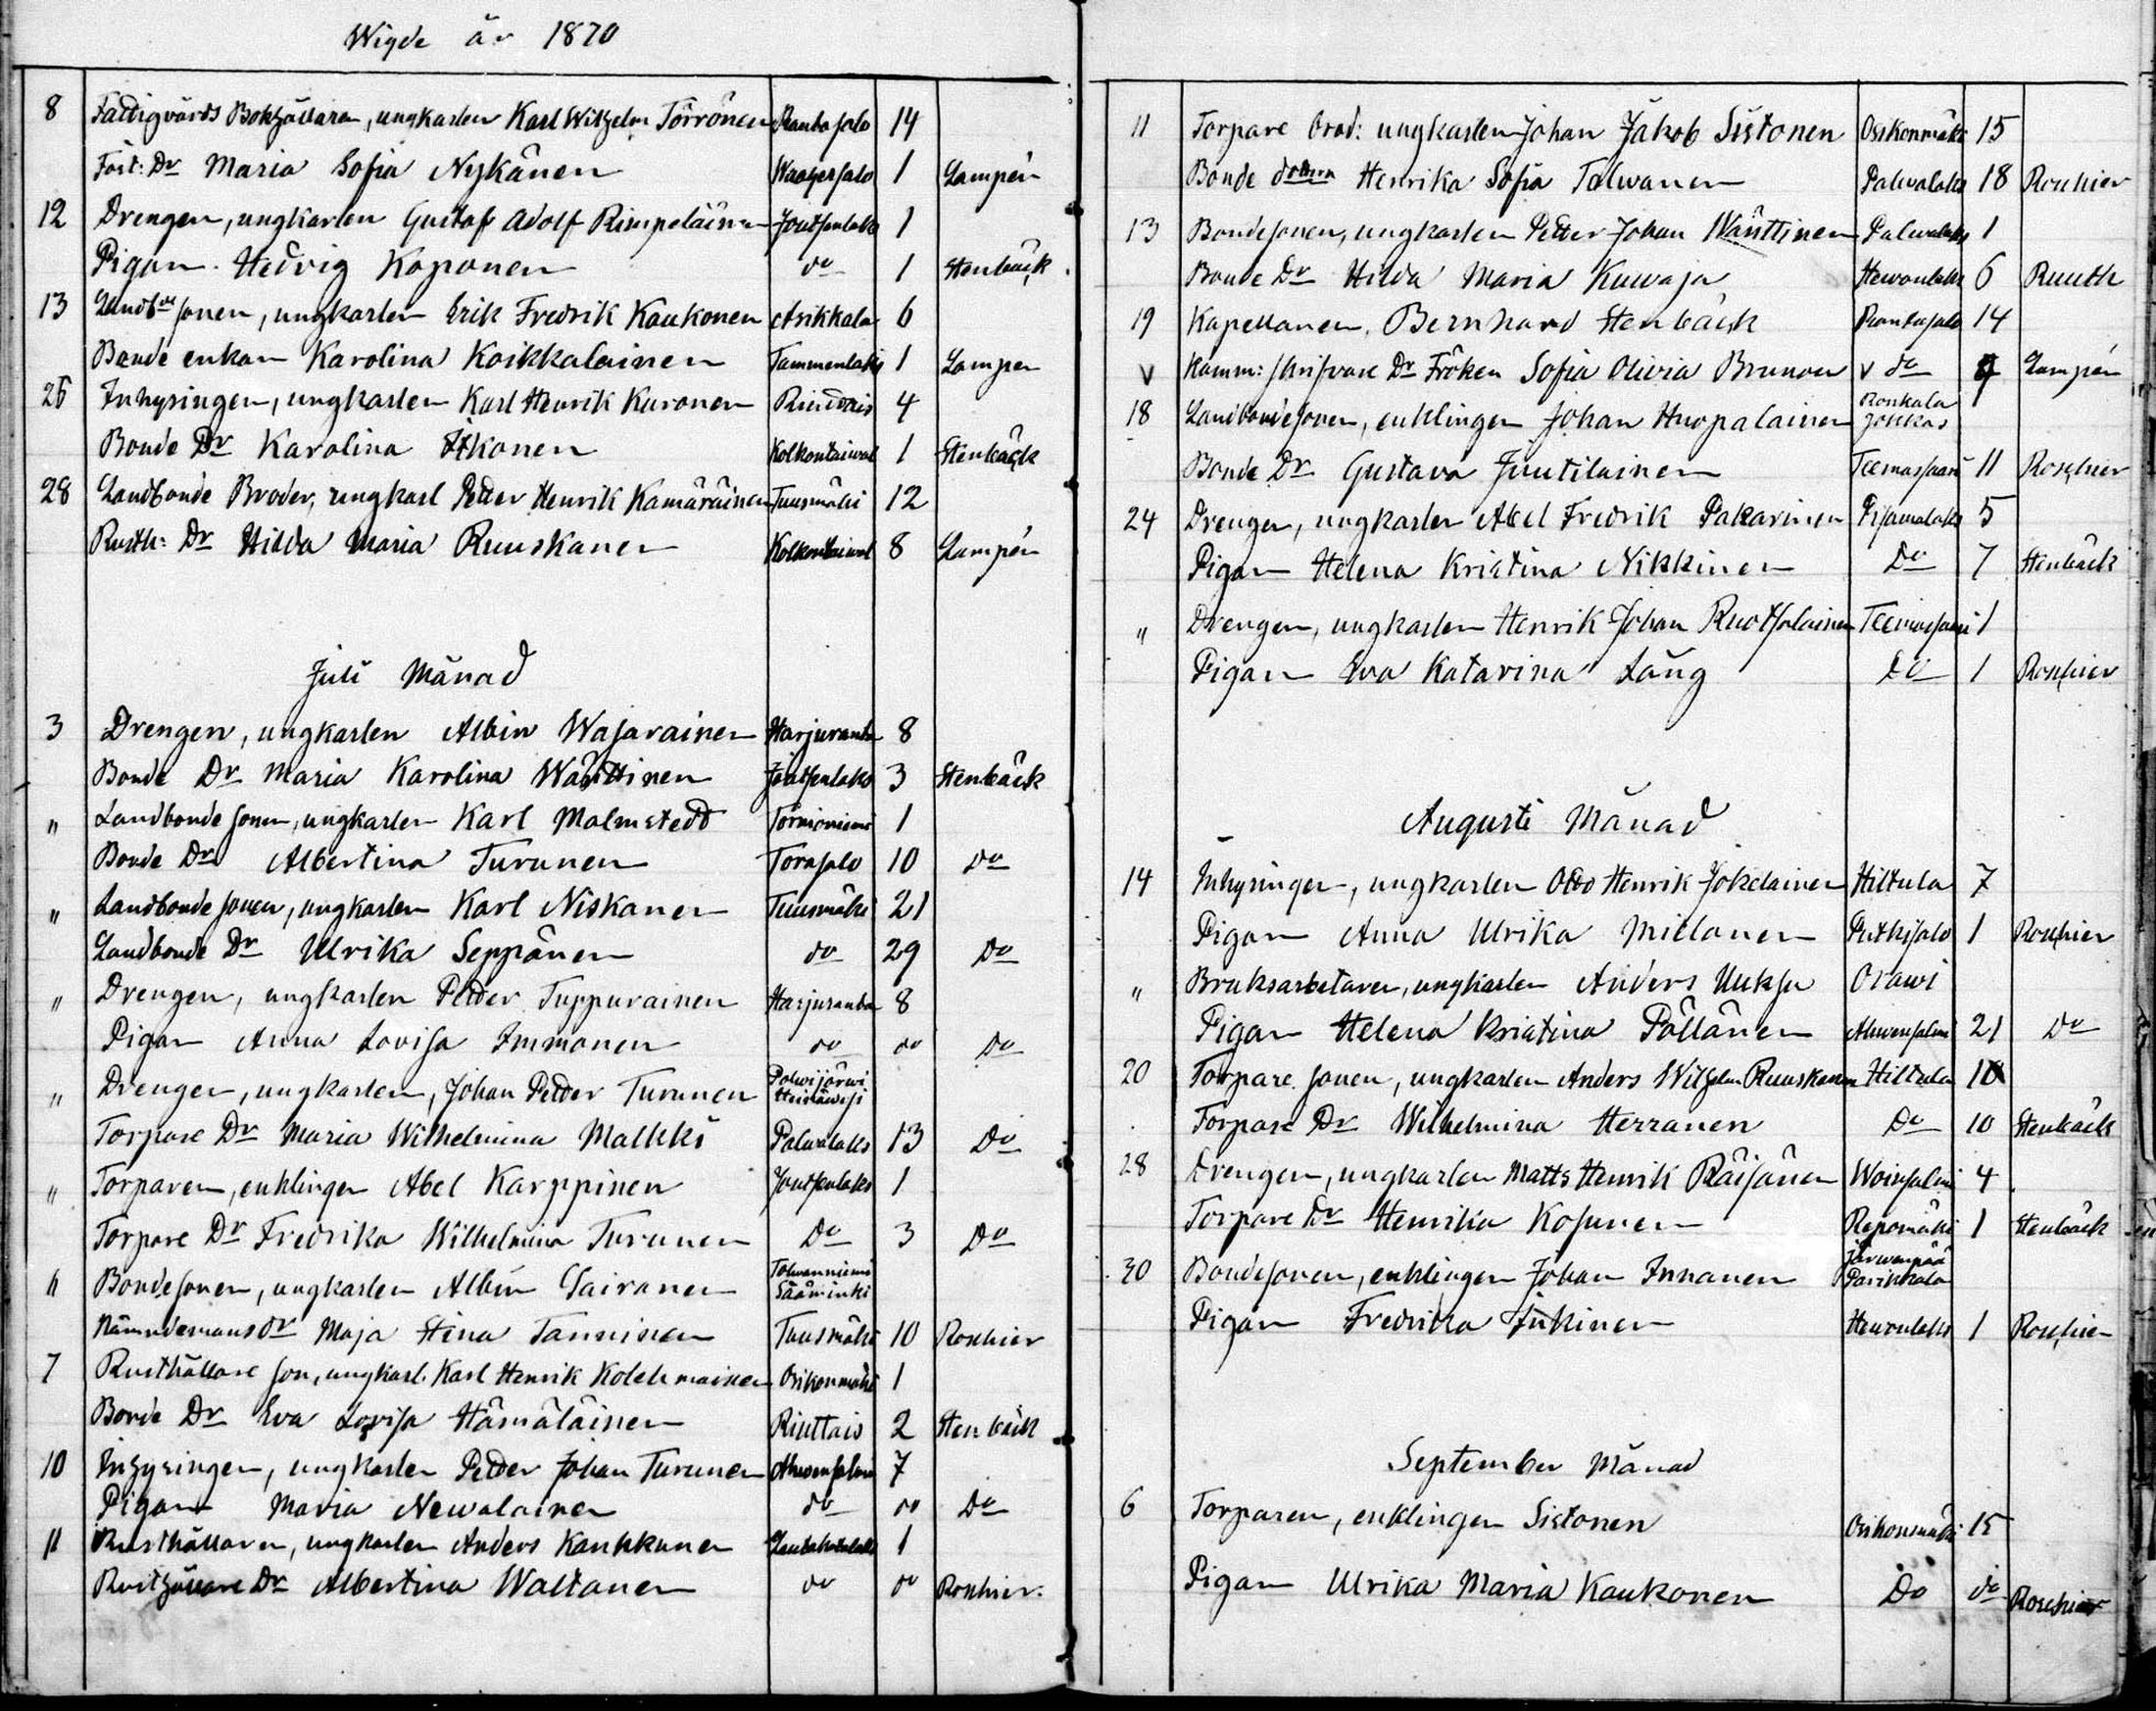 Wigde år 1870
8 Fattigvårds Bokhållaren, ungkarlen Karl Wilhelm Törrönen Rantasalo 14
Föst: Dr Maria Sofia Nykänen 1 Lampén
12 Drengen, ungkarlen Gustaf Adolf Rimpeläinen Joutsenlaks 1
Pigan Hedvig Koponen do 1 Stenbäck
13 Landbde sonen, ungkarlen Erik Fredrik Kaukonen Asikkala 6
Bonde enkan Karolina Koikkalainen Tammenlaks 1 Lampen
26 Inhysingen, ungkarlen Karl Henrik Kuronen 4
Bonde Dr Karolina Itkonen Kolkontaiwal 1 Stenbäck
28 Landbonde Broder, ungkarl Petter Henrik Kamäräinen Tuusmäki 12
Rusth: Dr Hilda Maria Ruuskanen Kolkontaiwal 8 Lampén
Juli Månad
3 Drengen, ungkarlen Albin Wajarainen Harjuranta 8
Bonde Dr Maria Karolina Wänttinen Joutsenlaks 3 Stenbäck
" Landbonde sonen, ungkarlen Karl Malmstedt Törmöniemi 1
Bonde Dr Albertina Turunen Torasalo 10 Do
" Landbonde sonen, ungkarlen Karl Niskanen Tuusmäki 21
Landbonde Dr Ulrika Seppänen do 29 Do
" Drengen, ungkarlen Petter Tuppurainen Harjuranta 8
Pigan Anna Lovisa Immonen do do Do
" Drengen, ungkarlen, Johan Petter Turunen Polwijärwi Heinäwesi
Torpare Dr Maria Wilhelmina Malkki Palwalaks 13 Do
" Torparen, enklingen Abel Karppinen Joutsenlaks 1
Torpare Dr Fredrika Wilhelmina Turunen Do 3 Do
" Bondesonen, ungkarlen Albin Sairanen Tolwanniemi Sääminki
Nämndemans dr Maja Stina Tanninen Tuusmäki 10 Roschier
7 Rusthållare son, ungkarl. Karl Henrik Kolehmainen Osikonmäki 1
Bonde Dr Eva Lovisa Hämäläinen Riuttais 2 Stenbäck
10 Inhysingen, ungkarlen Petter Johan Turunen Ahwensalmi 7
Pigan Maria Newalainen do do Do
11 Rusthållaren, ungkarlen Anders Kankkunen 1
Rusthållare Dr Albertina Waltanen do do Roschier.
11 Torpare brod: ungkarlen Johan Jakob Sistonen Osikonmäki 15
Bonde dottern Henrika Sofia Tolwanen Palwalaks 18 Roschier
13 Bondesonen, ungkarlen Petter Johan Wänttinen Palwalaks 1
Bonde Dr Hilda Maria Kuwaja Hewonlaks 6 Ruuth
19 Kapellanen, Bernhard Stenbäck Rantasalo 14
v Kamm: skrifvare Dr Fröken Sofia Olivia Brunou v do Lampén
18 Landbondesonen, enklingen Johan Huopalainen Ronkala Jokkas
Bonde Dr Gustava Juutilainen Teemassaari 11 Roschier
24 Drengen, ungkarlen Abel Fredrik Pakarinen Pisamalaks 5
Pigan Helena Kristina Nikkinen Do 7 Stenbäck
" Drengen, ungkarlen Henrik Johan Ruotsalainen Teemassaari 1
Pigan Eva Katarina Lång Do 1 Roschier
Augusti Månad
14 Inhysingen, ungkarlen Otto Henrik Jokelainen Hiltula 7
Pigan Anna Ulrika Miettonen Putkisalo 1 Roschier
" Bruksarbetaren, ungkarlen Anders Uuksu Orawi
Pigan Helena Kristina Pöllänen Ahwensalmi 21 Do
20 Torpare sonen, ungkarlen Anders Wilhelm Ruuskanen Hiltula 10
Torpare Dr Wilhelmina Herranen Do 10 Stenbäck
28 Drengen, ungkarlen Matts Henrik Räisänen Woinsalmi 4
Torpare Dr Henrika Kosunen Repomäki 1 Stenbäck
30 Bondesonen, enklingen Johan Innanen Järwenpää Parikkala
Pigan Fredrika Inkinen Hewonlaks 1 Roschier
September Månad
6 Torparen, enklingen Sistonen Osikonmäki 15
Pigan Ulrika Maria Kaukonen Do do Roschier